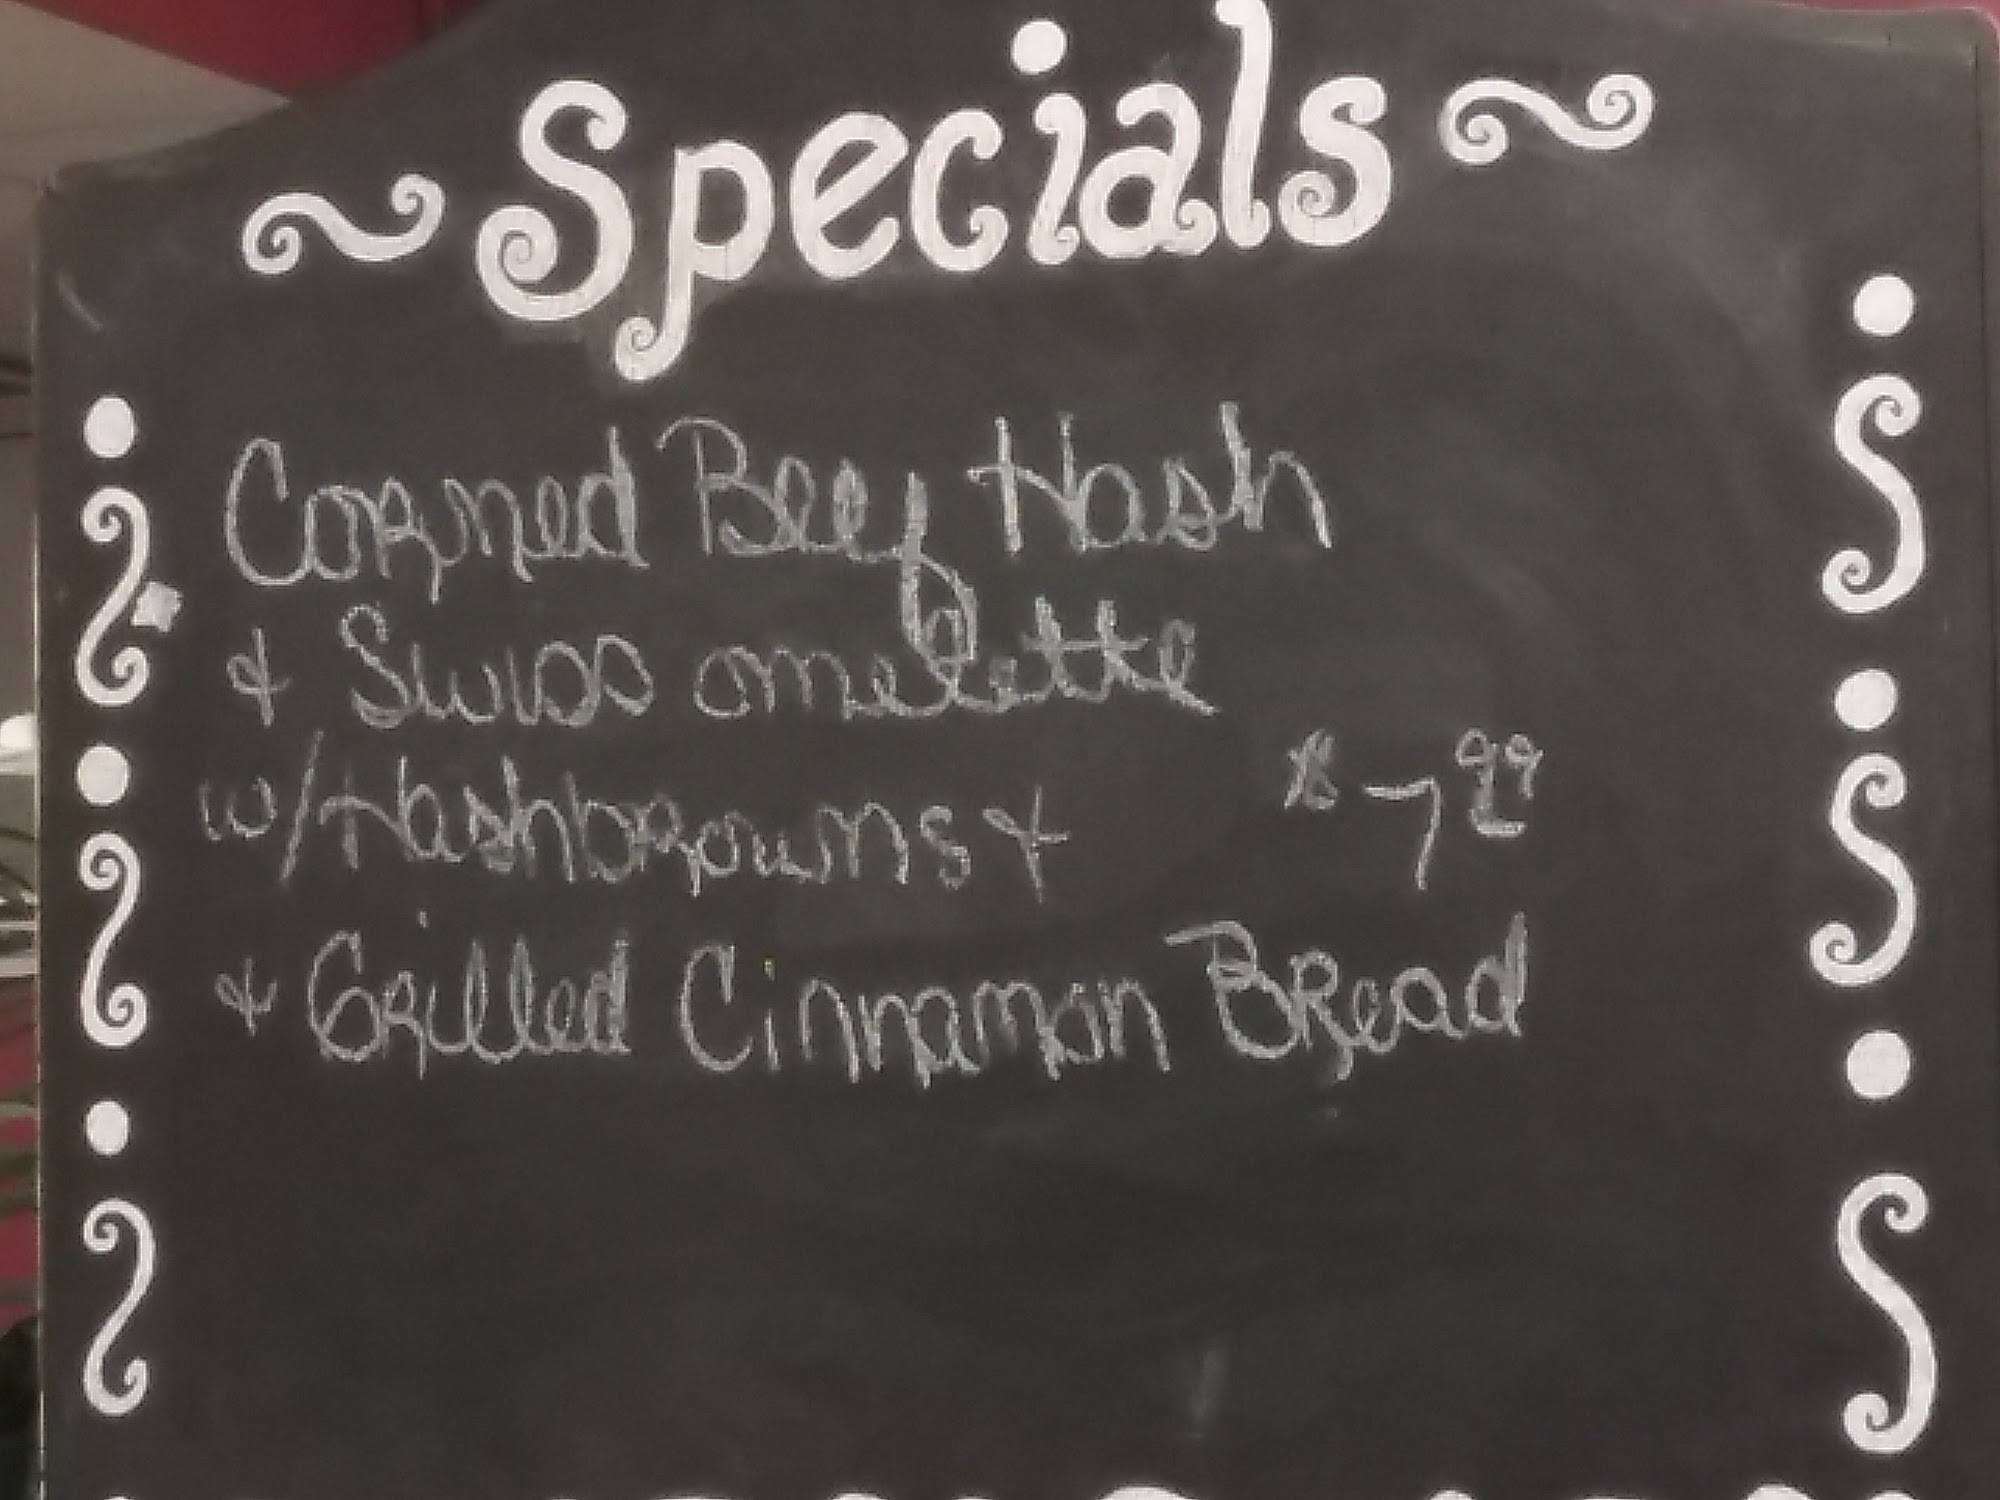 ~Specials~
Corned Beef Hash
& Swiss omelette
w/Hashbrowns &
$7.99
& Grilled Cinnamon Bread